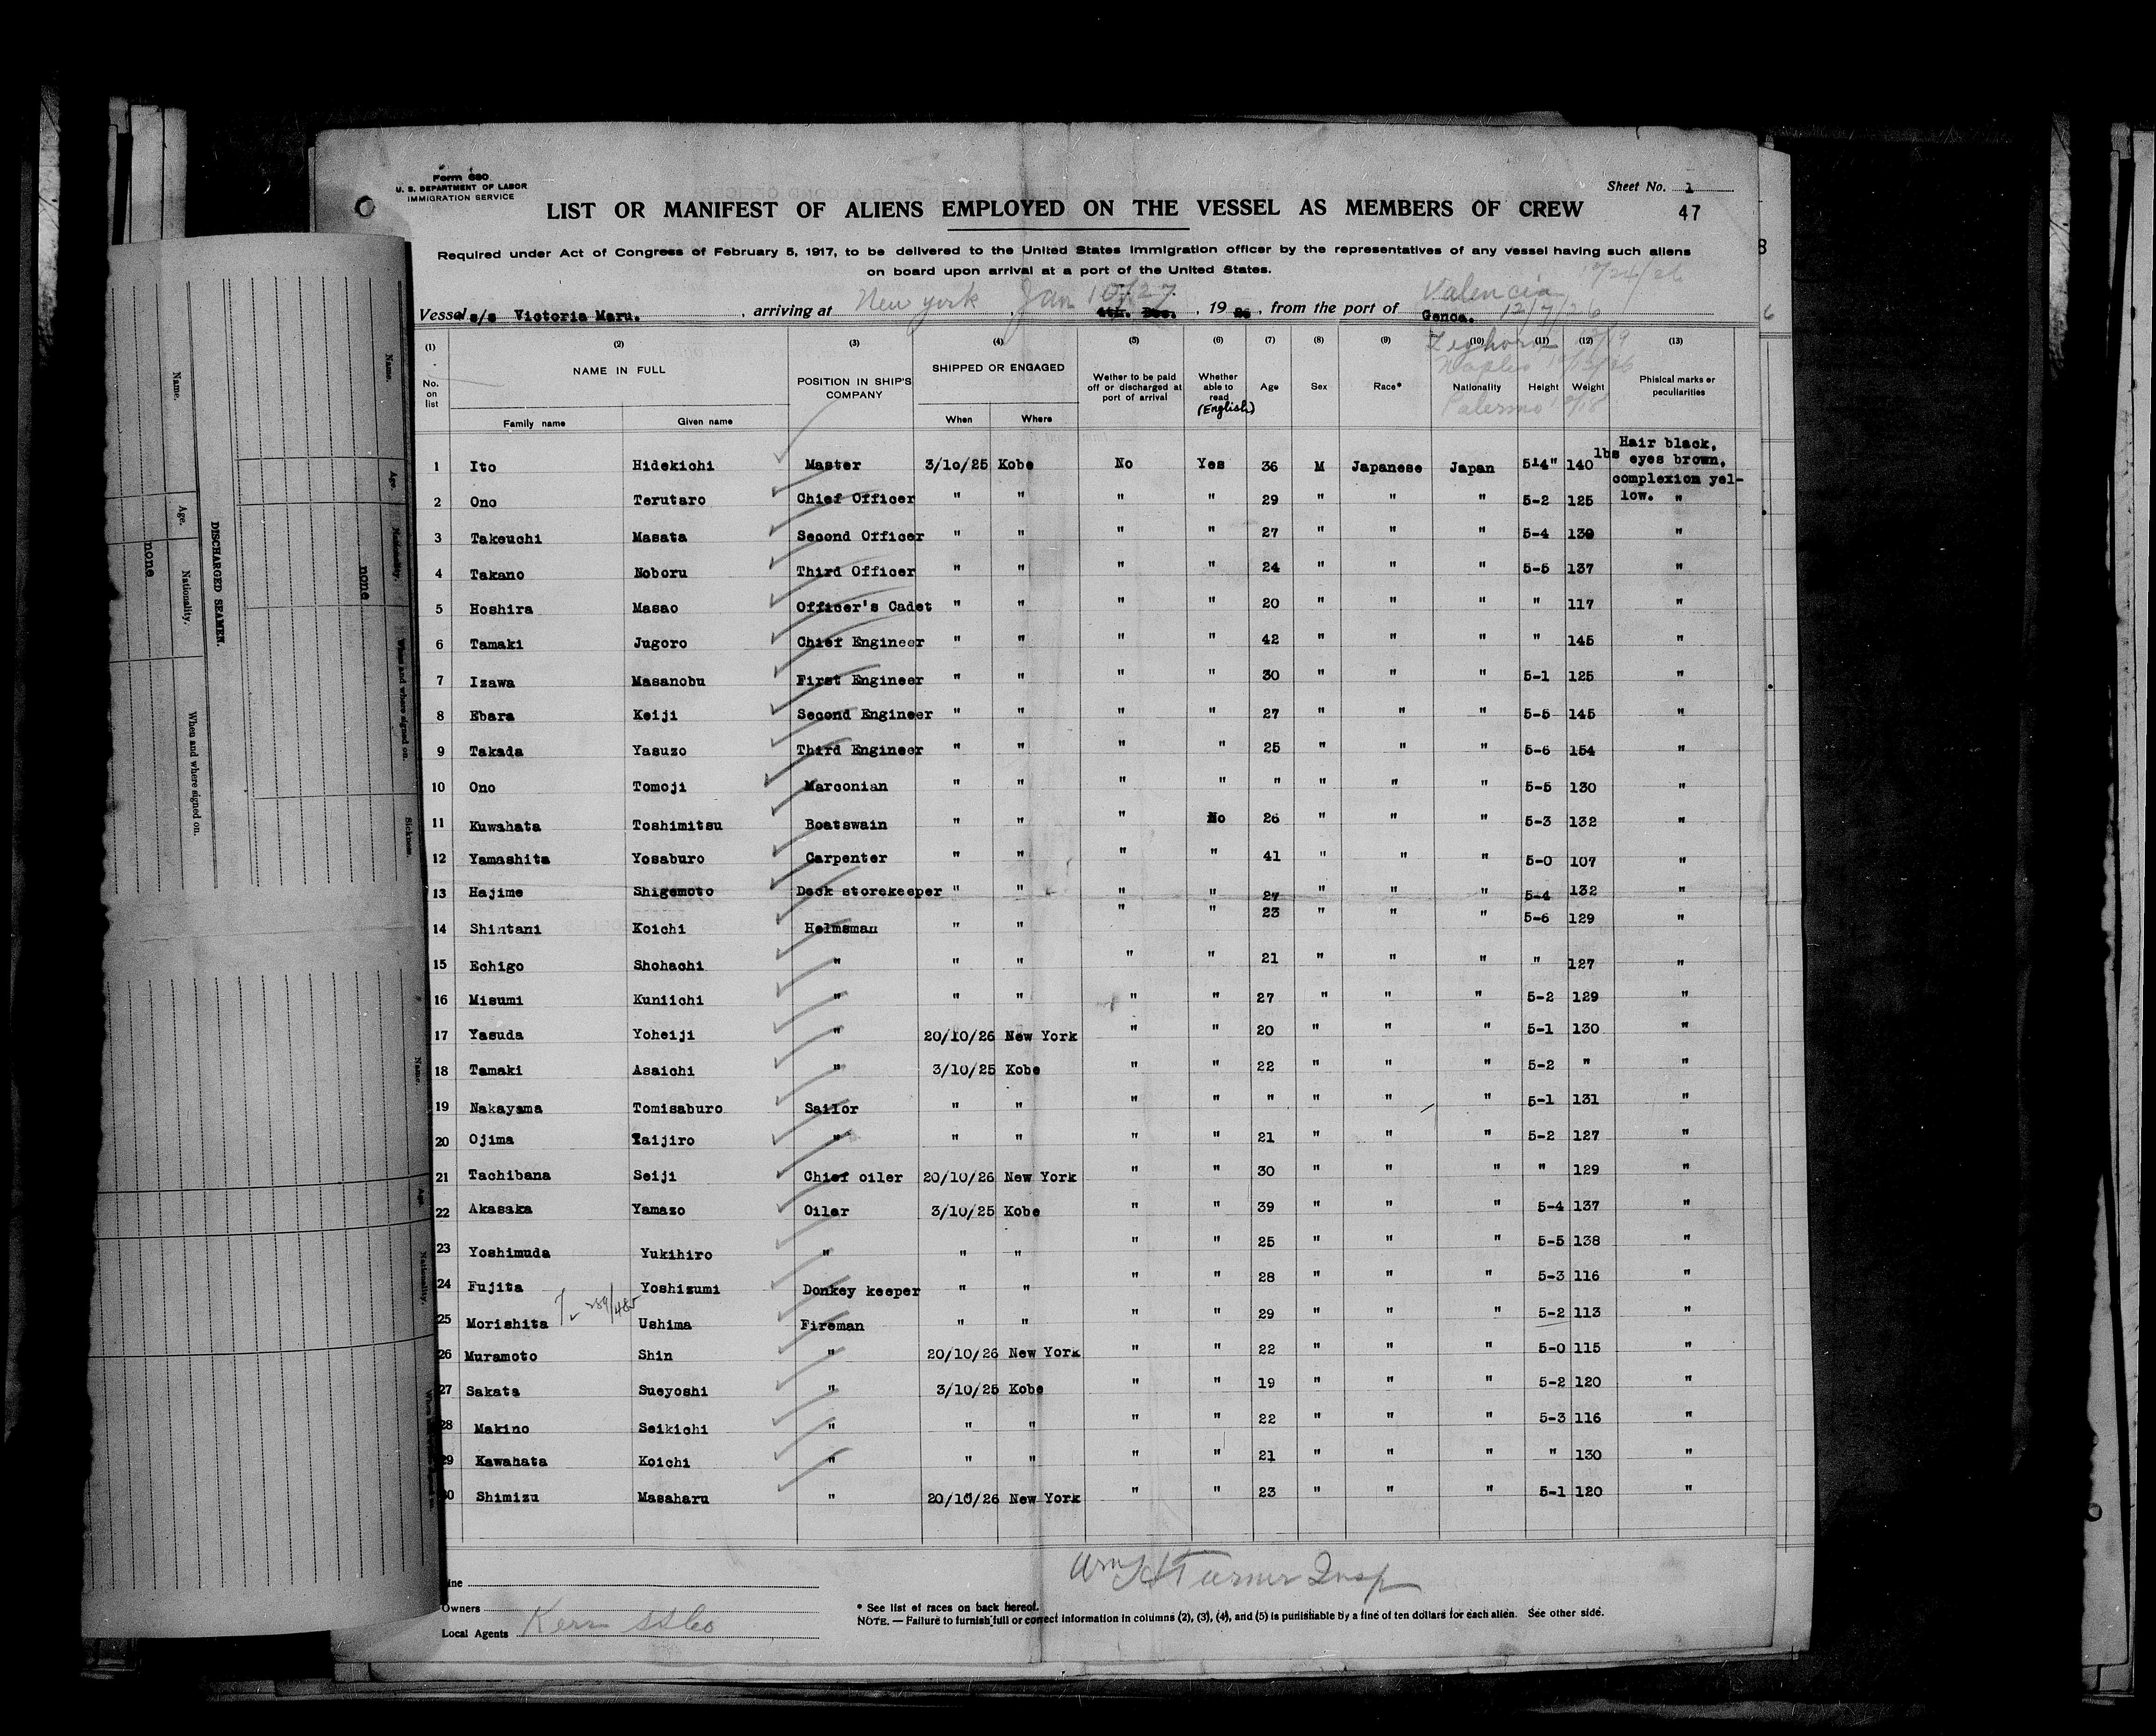 Form 680
U. S. DEPARTMENT OF LABOR
IMMIGRATION SERVICE
Sheet No. 1
47
LIST OR MANIFEST OF ALIENS EMPLOYED ON THE VESSEL AS MEMBERS OF CREW
Required under Act of Congress of February 5, 1917, to be delivered to the United States Immigration officer by the representatives of any vessel having such aliens
on board upon arrival at a port of the United States.
Valencia 12/24/26
Vessel s/s Victoria Maru. , arriving at New york Jan 10/27 4th. Dec. , 19 26 , from the port of Genoa. 12/7/26
Leghorn
Naples
Palermo
(1) (2) (3) (4) (5) (6) (7) (8) (9) (10) (11) (12) (13)
No. on list NAME IN FULL POSITION IN SHIP'S COMPANY SHIPPED OR ENGAGED Wether to be paid off or discharged at port of arrival Whether able to read (English) Age Sex Race* Nationality Height Weight Phisical marks or peculiarities
Family name Given name When Where
1 Ito Hidekichi Master 3/10/25 Kobe No Yes 36 M Japanese Japan 5'4" 140 lbs Hair black, eyes brown, complexion yellow.
2 Ono Terutaro Chief Officer " " " " 29 " " " 5-2 125 "
3 Takeuchi Masata Second Officer " " " " 27 " " " 5-4 130 "
4 Takano Noboru Third Officer " " " " 24 " " " 5-5 137 "
5 Hoshira Masao Officer's Cadet " " " " 20 " " " " 117 "
6 Tamaki Jugoro Chief Engineer " " " " 42 " " " " 145 "
7 Izawa Masanobu First Engineer " " " " 30 " " " 5-1 125 "
8 Ebara Keiji Second Engineer " " " " 27 " " " 5-5 145 "
9 Takada Yasuzo Third Engineer " " " " 25 " " " 5-6 154 "
10 Ono Tomoji Marconian " " " " " " " " 5-5 130 "
11 Kuwahata Toshimitsu Boatswain " " " No 26 " " " 5-3 132 "
12 Yamashita Yosaburo Carpenter " " " " 41 " " " 5-0 107 "
13 Hajime Shigemoto Deck storekeeper " " " " 27 " " " 5-4 132 "
14 Shintani Koichi Helmsman " " " " 23 " " " 5-6 129 "
15 Echigo Shohachi " " " " " 21 " " " " 127 "
16 Misumi Kuniichi " " " " " 27 " " " 5-2 129 "
17 Yasuda Yoheiji " 20/10/26 New York " " 20 " " " 5-1 130 "
18 Tamaki Asaichi " 3/10/25 Kobe " " 22 " " " 5-2 " "
19 Nakayama Tomisaburo Sailor " " " " " " " " 5-1 131 "
20 Ojima Taijiro " " " " " 21 " " " 5-2 127 "
21 Tachibana Seiji Chief oiler 20/10/26 New York " " 30 " " " " 129 "
22 Akasaka Yamazo Oiler 3/10/25 Kobe " " 39 " " " 5-4 137 "
23 Yoshimuda Yukihiro " " " " " 25 " " " 5-5 138 "
24 Fujita Yoshizumi Donkey keeper " " " " 28 " " " 5-3 116 "
25 Morishita Ushima Fireman " " " " 29 " " " 5-2 113 "
26 Muramoto Shin " 20/10/26 New York " " 22 " " " 5-0 115 "
27 Sakata Sueyoshi " 3/10/25 Kobe " " 19 " " " 5-2 120 "
28 Makino Seikichi " " " " " 22 " " " 5-3 116 "
29 Kawahata Koichi " " " " " 21 " " " " 130 "
30 Shimizu Masaharu " 20/10/26 New York " " 23 " " " 5-1 120 "
Wm H Turner Insp
Line
Owners
Local Agents Kerr SS Co
* See list of races on back hereof.
NOTE. — Failure to furnish full or correct information in columns (2), (3), (4), and (5) is punishable by a fine of ten dollars for each alien. See other side.
Name. Age. Nationality. When and where signed on.
none
DISCHARGED SEAMEN.
Name. Age. Nationality. When and where signed on. Sickness.
none
Name. Age. Nationality.